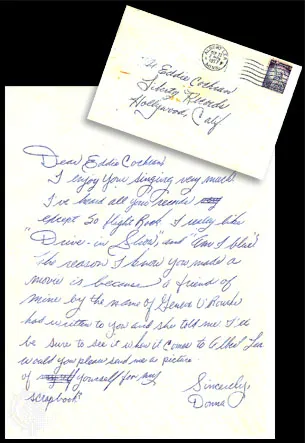 To Eddie Cochran
Liberty Records
Hollywood, Calif
Dear Eddie Cochran
I enjoy your singing very much.
I've heard all your records
except So flight Rock I really like
"Drive-in Show" and "Am I blue"
The reason I know you made a
movie is because a friend of
mine by the name of
had written to you and she told me I'd
be sure to see it when it comes to
Would you please send me a picture
of yourself for my
scrapbook?
Sincerely,
Donna